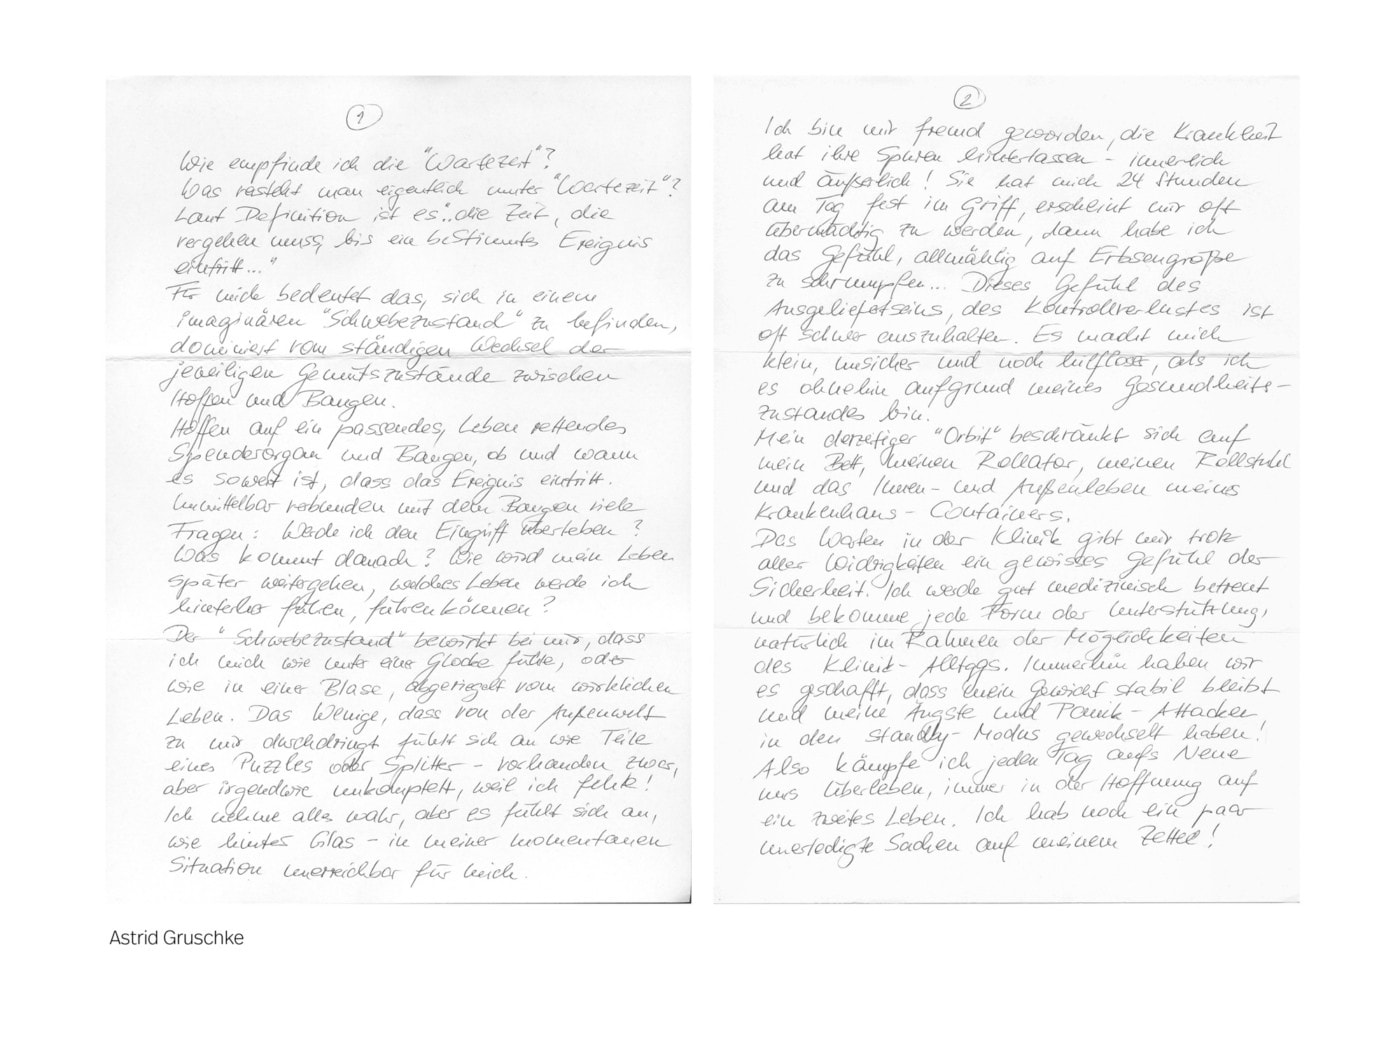 1
Wie empfinde ich die "Wartezeit"?
Was versteht man eigentlich unter "Wartezeit"?
Laut Definition ist es "..die Zeit, die
vergehen muss, bis ein bestimmtes Ereignis
eintritt..."
Für mich bedeutet das, sich in einem
imaginären "Schwebezustand" zu befinden,
dominiert vom ständigen Wechsel der
jeweiligen Gemütszustände zwischen
Hoffen und Bangen.
Hoffen auf ein passendes, Leben rettendes
Spenderorgan und Bangen, ob und wann
es soweit ist, dass das Ereignis eintritt.
Unmittelbar verbunden mit dem Bangen viele
Fragen: Werde ich den Eingriff überleben?
Was kommt danach? Wie wird mein Leben
später weitergehen, welches Leben werde ich
hinterher führen, führen können?
Der "Schwebezustand" bewirkt bei mir, dass
ich mich wie unter einer Glocke fühle, oder
wie in einer Blase, abgeriegelt vom wirklichen
Leben. Das Wenige, dass von der Außenwelt
zu mir durchdringt fühlt sich an wie Teile
eines Puzzles oder Splitter - vorhanden zwar,
aber irgendwie unkomplett, weil ich fehle!
Ich nehme alles wahr, aber es fühlt sich an,
wie hinter Glas - in meiner momentanen
Situation unerreichbar für mich.
2
Ich bin mir fremd geworden, die Krankheit
hat ihre Spuren hinterlassen - innerlich
und äußerlich! Sie hat mich 24 Stunden
am Tag fest im Griff, erscheint mir oft
übermächtig zu werden, dann habe ich
das Gefühl, allmählig auf Erbsengröße
zu schrumpfen... Dieses Gefühl des
Ausgeliefertseins, des Kontrollverlustes ist
oft schwer auszuhalten. Es macht mich
klein, unsicher und noch hilfloser, als ich
es ohnehin aufgrund meines Gesundheits-
zustandes bin.
Mein derzeitiger "Orbit" beschränkt sich auf
mein Bett, meinen Rollator, meinen Rollstuhl
und das Innen- und Außenleben meines
Krankenhaus-Containers.
Das Warten in der Klinik gibt mir trotz
aller Widrigkeiten ein gewisses Gefühl der
Sicherheit. Ich werde gut medizinisch betreut
und bekomme jede Form der Unterstützung,
natürlich im Rahmen der Möglichkeiten
des Klinik-Alltags. Immerhin haben wir
es geschafft, dass mein Gewicht stabil bleibt
und meine Ängste und Panik-Attacken
in den Standby-Modus gewechselt haben!
Also kämpfe ich jeden Tag aufs Neue
ums Überleben, immer in der Hoffnung auf
ein zweites Leben. Ich hab noch ein paar
unerledigte Sachen auf meinem Zettel!
Astrid Gruschke